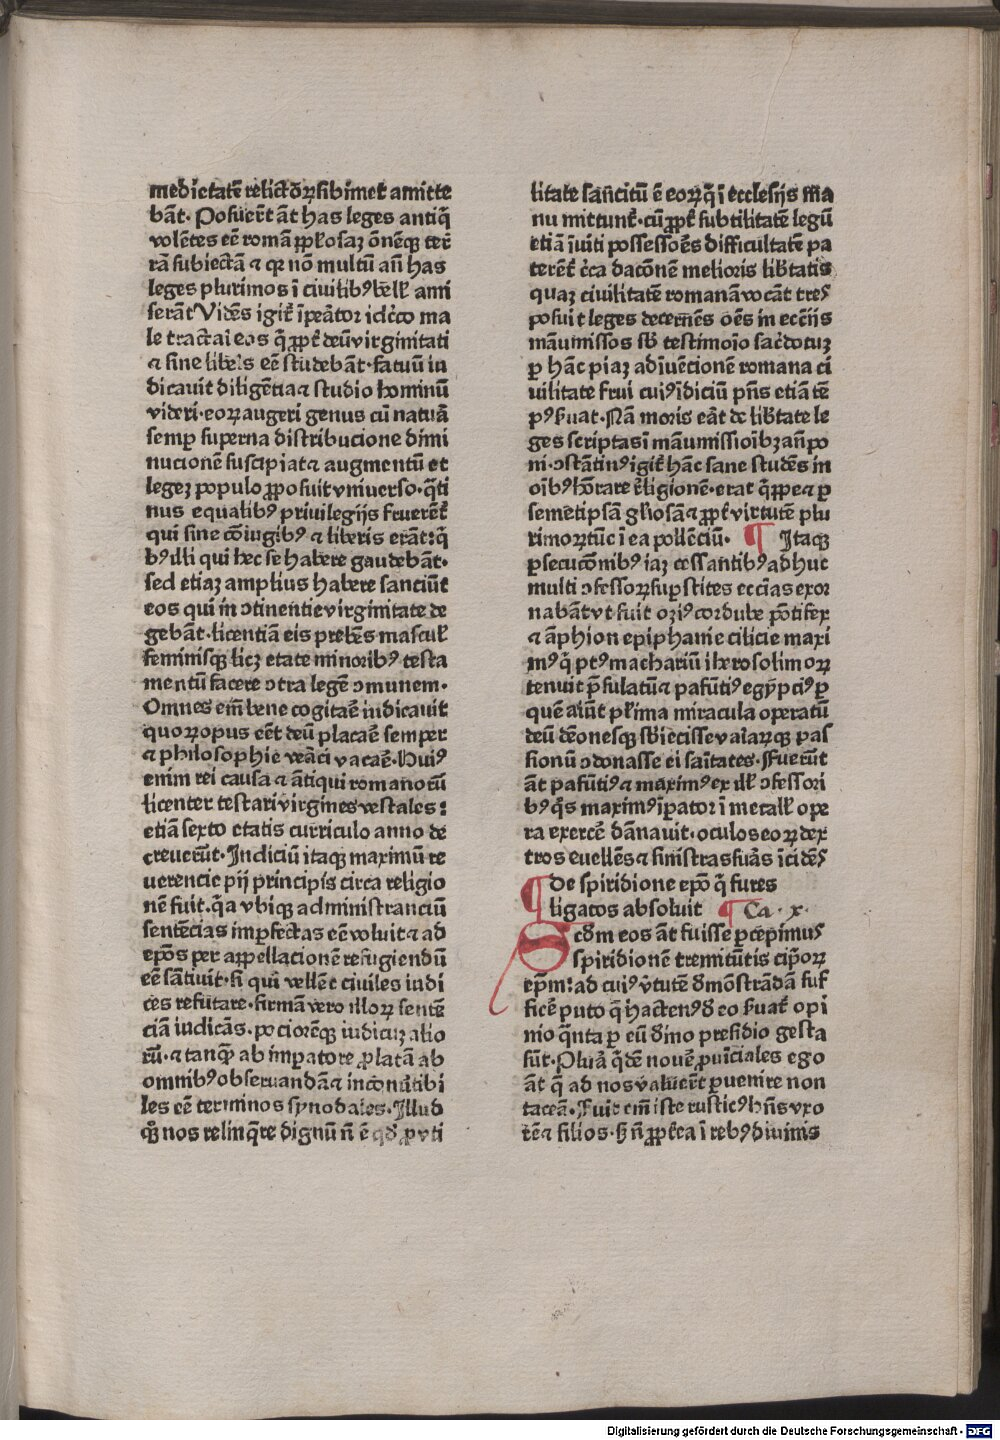 medietatē relictoꝝ sibimet amitte
bāt. Posuerūt āt has leges antiq̄
volētes eē romā ꝓpl'osaꝫ ōnēqꝫ ter
rā subiectā ⁊ qꝛ nō multū añ has
leges plurimos ī ciuilibꝰ bell' ami
serāt Vidēs igit̄ īpeator idcirco ma
le tractāi eos q̄ ꝓpt̄ deū virginitati
⁊ sine libe's eē studebāt. fatuū iu
dicauit diligētia ⁊ studio hominū
videri. eoꝝ augeri genus cū natura
semꝑ superna distribucione dimi
nucionē suscipiat ⁊ augmentū et
legeꝫ populo ꝓposuit vniuerso. q̄ti
nus equalibꝰ priuilegijs fruerēt
qui sine cōiugibꝰ ⁊ liberis erāt: q̄
bꝰ illi qui hec se habere gaudebāt.
sed etiaꝫ amplius habere sanciūt
eos qui in ↄtinentie virginitate de
gebāt. licentiā eis prebēs mascul'
feminisqꝫ licꝫ etate minoribꝰ testa
mentū facere ↄtra legē ↄmunem.
Omnes em̄ bene cogitaē iudicauit
quoꝝ opus eēt deū placaē semper
⁊ philosophie veraci vacaē. Huiꝰ
enim rei causa ⁊ ātiqui romanorū
licenter testari virgines vestales:
etiā sexto etatis curriculo anno de
creuerūt. Indiciū itaqꝫ maximū re
uerencie pij principis circa religio
nē fuit. q̄a vbiqꝫ administranciū
sentēcias imꝑfectas eē voluit ⁊ ad
ep̄os per appellacionē refugiendū
eē sātiuit. si qui vellēt ciuiles iudi
ces refutare. firmā vero illoꝝ sentē
ciā iudicās. pociorēqꝫ iudicuꝫ alio
rū. ⁊ tanqꝫ ab imꝑatore ꝓlatā ab
omnibꝰ obseruandā ⁊ inconutibi
les eē terminos synodales. Illud
qꝫ nos relinq̄re dignū ñ ē qd̄ ꝓ vti
litate sancitū ē eoꝝ q̄ ī ecclesijs ma
nu mittunt̄. cū ꝓpt̄ subtilitatē legū
etiā īuiti possessoēs difficultatē pa
terēt̄ c̄ca dacōnē melioris lib̄tatis
quaꝫ ciuilitatē romanā vocāt tres
posuit leges decernēs oēs in eccijs
māumissos sb̄ testimoīo sac̄dotuꝫ
ꝑ hāc piaꝫ adīuēcionē romana ci
uilitate frui cuiꝰ īdiciū pn̄s etiā tē
pꝰ ẜuat. Nā moris eāt de lib̄tate le
ges scriptas ī māumissioībꝫ añ po
ni. ↄstātinꝰ igit̄ hāc sane studēs in
oībꝰ hōrare religionē. erat q̄ppe ⁊ ꝑ
semetipsā gl'iosā ⁊ ꝓpt̄ virtutē plu
rimoꝝ tūc ī ea pollēciū. ¶ Itaqꝫ
ꝑsecucōnibꝰ iaꝫ cessantibꝰ adhuc
multi ↄfessoꝝ suꝑstites eccias exor
nabāt vt fuit oziꝰ cordube pōtifex
⁊ āphion epiphanie cilicie maxi
mꝰ q̄ ptꝰ machariū iherosolimoꝝ
tenuit p̄sulatū ⁊ pafūtiꝰ egypciꝰ ꝑ
quē aiūt pl'ima miracula operatū
deū dēonesqꝫ sb̄iecisse vaīaꝝqꝫ pas
sionū ↄdonasse ei saītates. Fuerūt
āt pafūtiꝰ ⁊ maximꝰ ex dl' ↄfessori
bꝰ q̄s maximꝰ īꝑator ī metall' ope
ra exercē dānauit. oculos eoꝝ dex
tros euellēs ⁊ sinistras suras īcidēs
¶ De spiridione ep̄o q̄ fures
ligatos absoluit ¶ Ca. x.
Scdm eos āt fuisse ꝑcepimus
spiridionē tremitūtis cip̄oꝝ
ep̄m: ad cuiꝰ v̄tutē dmōstrādā suf
ficē puto q̄ hactenꝰ d eo ẜuat̄ opi
nio q̄nta ꝑ eū dīno presidio gesta
sūt. Plura q̄dē nouē ꝓuīciales ego
āt q̄ ad nos valuerūt ꝑuenire non
taceā. Fuit em̄ iste rusticꝰ hn̄s vxo
rē ⁊ filios. sꝫ ñ ꝓpt̄ea ī rebꝰ diuinis
Digitalisierung gefördert durch die Deutsche Forschungsgemeinschaft - DFG